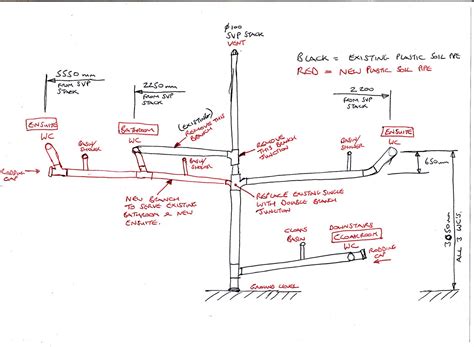 Ø100
SVP STACK
VENT
BLACK = EXISTING PLASTIC SOIL PIPE
RED = NEW PLASTIC SOIL PIPE
5550mm
FROM SVP
STACK
2250mm
FROM SVP
STACK
2200
FROM SVP
STACK
ENSUITE
WC
BASIN/
SHOWER
BATHROOM
WC
(EXISTING)
REMOVE THIS
BRANCH
BASIN/
SHOWER
REMOVE
THIS BRANCH
JUNCTION
BASIN/
SHOWER
ENSUITE
WC
650mm
RODDING
CAP
NEW BRANCH
TO SERVE EXISTING
BATHROOM & NEW
ENSUITE.
REPLACE EXISTING SINGLE
WITH DOUBLE BRANCH
JUNCTION
3050mm
ALL 3 WC'S.
CLOAKS
BASIN
DOWNSTAIRS
CLOAKROOM
WC
RODDING
CAP
GROUND LEVEL